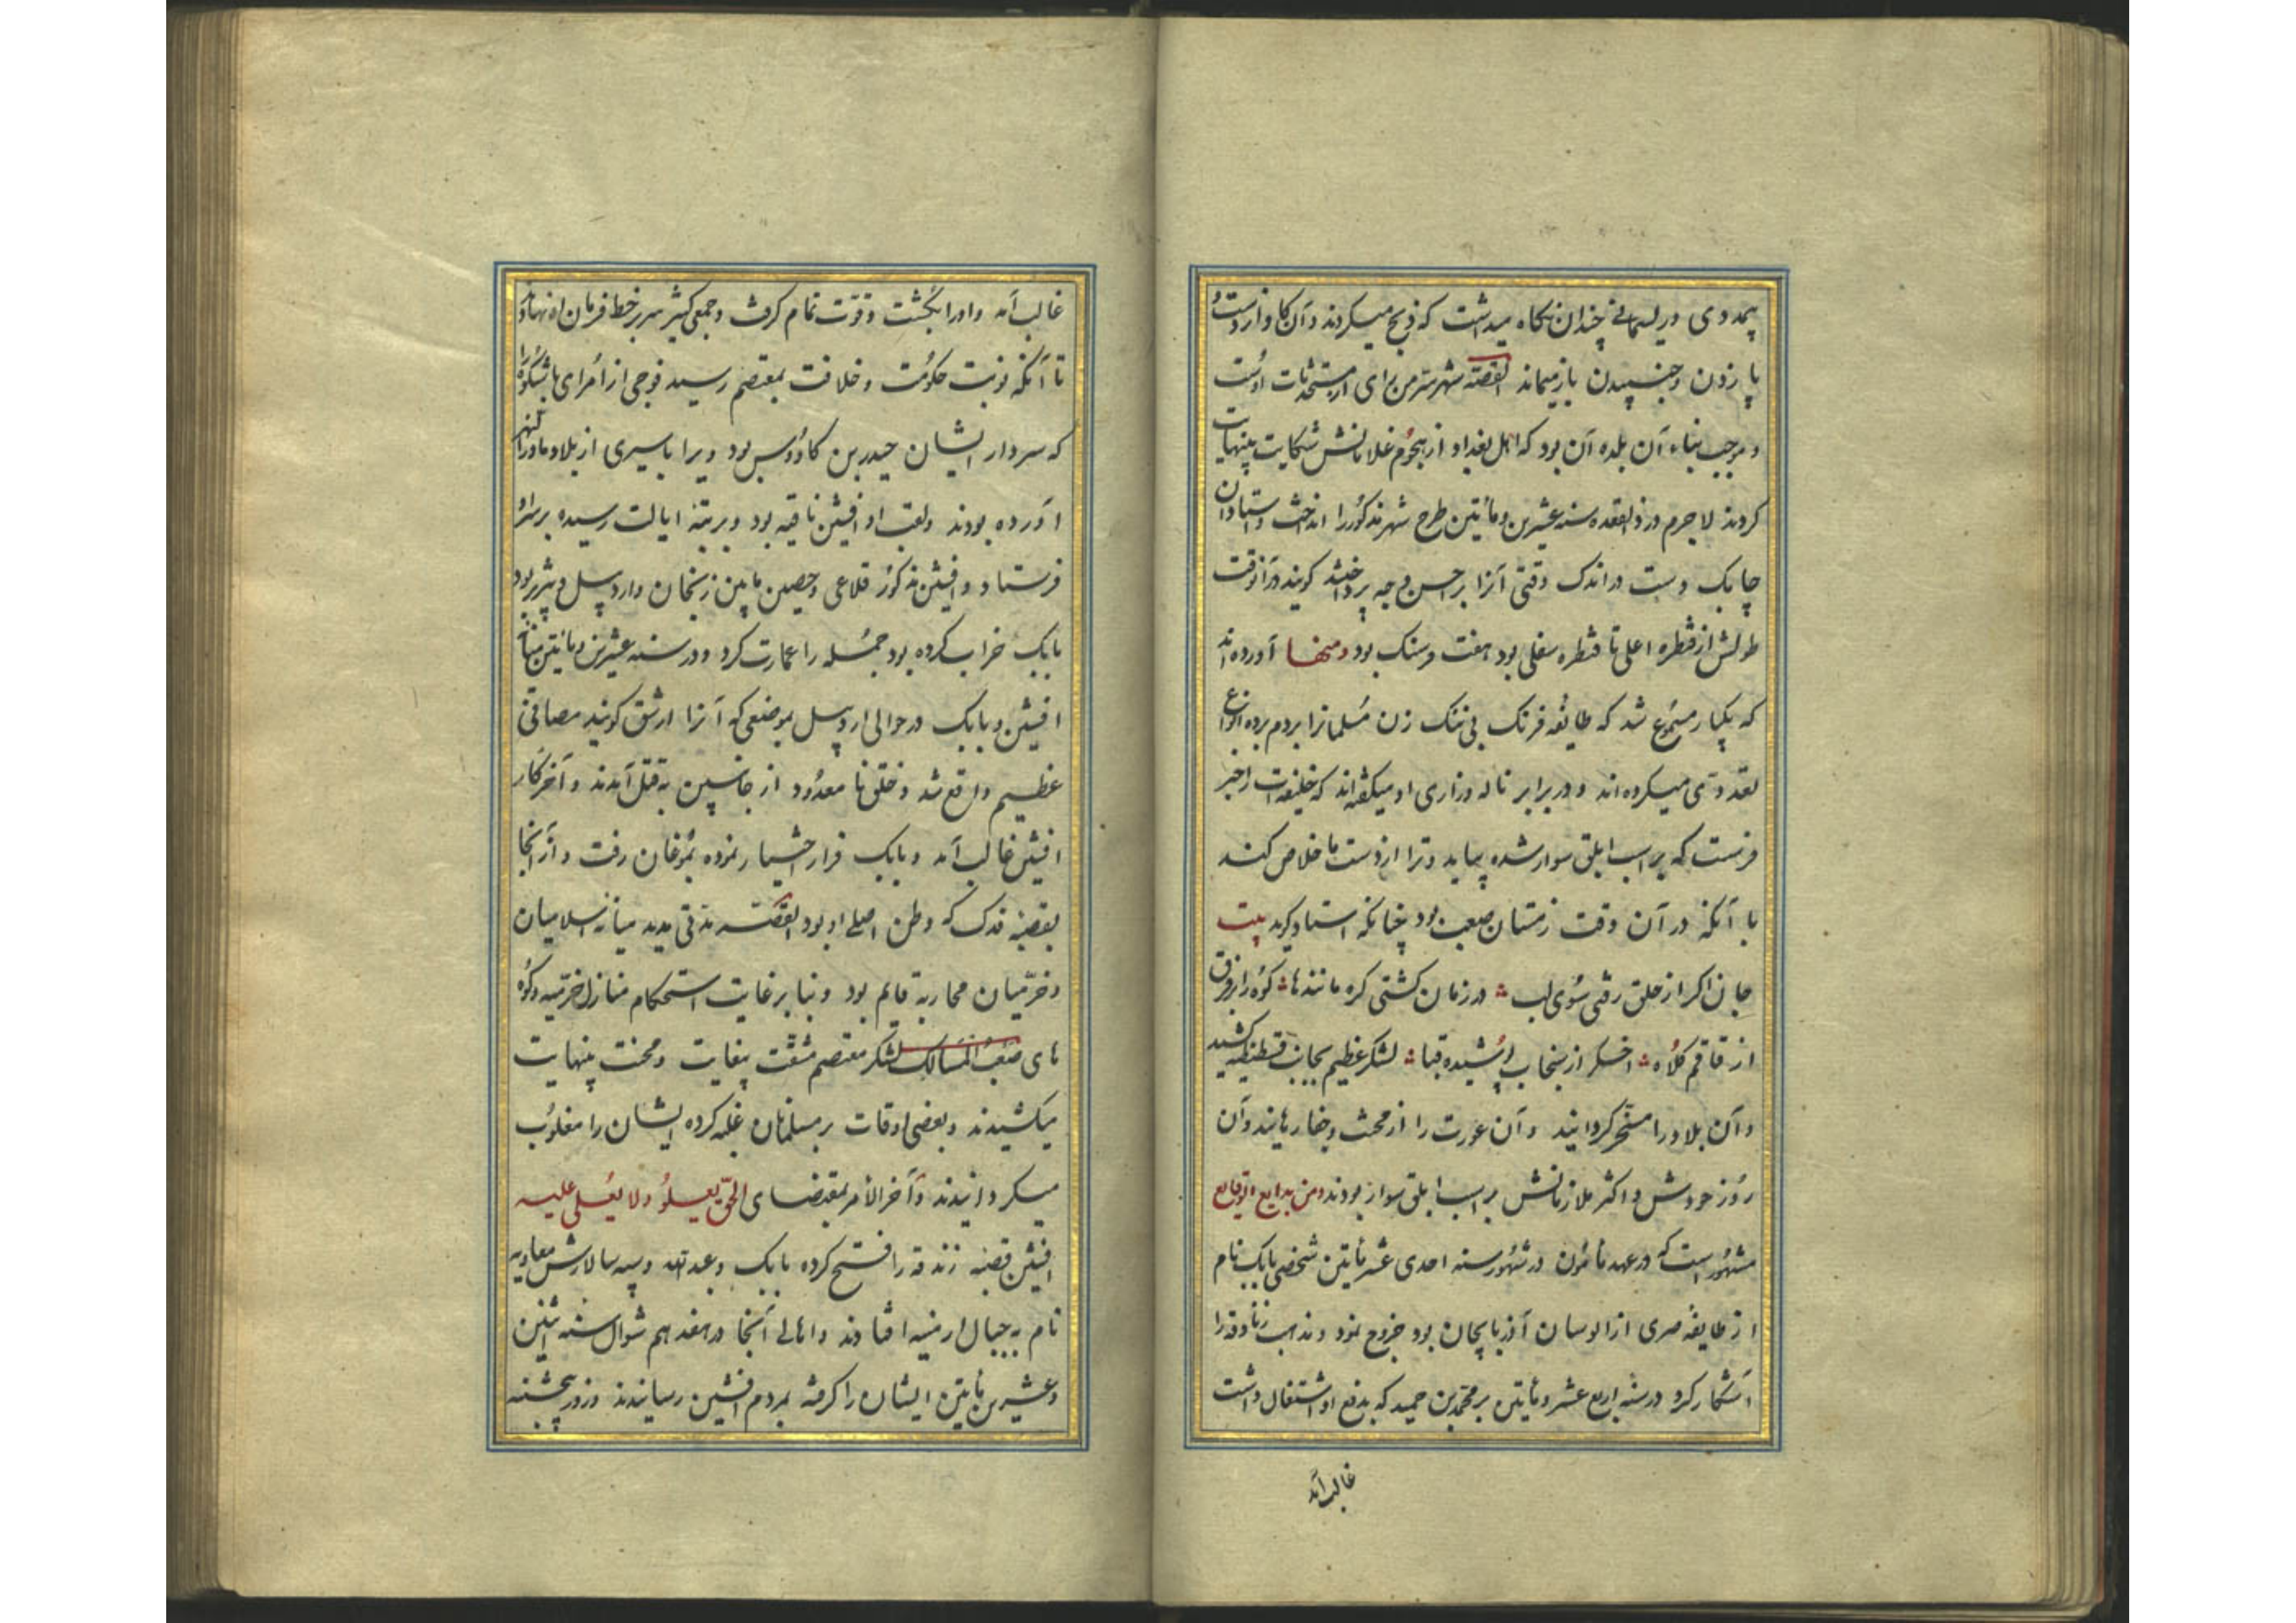 پیمد وی در یسمانی چندان نگاه میداشت که ذبح میکردند و آن گاو از دست و
پا زدن و جنبیدن بازمیماند القصّه شهر سرمن رای از مستحدثات اوست
و موجب بناء آن بلده آن بود که اهل بغداد از هجوم غلامانش شکایت بینهایت
کردند لاجرم در ذوالقعده سنه عشرین و مأتین طرح شهر مذکور را انداخت و استادان
چابک دست در اندک وقتی آنرا بر احسن وجه پرداخت کویند در آنوقت
طولش از قنطره اعلی تا قنطره سفلی بود هفت فرسنک بود ومنها آورده اند
که یکبار مسموع شد که طایفه فرنک بی ننک زن مسلمانرا بردم برده انواع
تعدی میکرده اند و در برابر ناله و زاری او میکفته اند که خلیفه ات را خبر
فرست که بر اسب ابلق سوار شده بیاید و ترا از دست ما خلاص کند
با آنکه در آن وقت زمستان صعب بود چنانکه استاد کوید بیت
جان اکر از حلق رفتی سوی لب در زمان کشتی کره مانند ها کوه را بر فرق
از قاقم کلاه اخکر از سنجاب پوشیده قبا لشکر عظیم بجانب قسطنطنیه کشید
و آن بلاد را مسخر کردانید و آن عورت را از محنت وخفار هانید و آن
روز خودش و اکثر ملازمانش بر اسب ابلق سوار بودند ومن بدایع الوقایع
مشهور است که در عهد مأمون در شهور سنه احدی عشر مأتین شخصی بابک نام
از طایفه صری از الوسان آذربایجان بود خروج نمود و مذهب زنادقه را
آشکار کرد در سنه اربع عشر و مأتین بر محمد بن حمید که بدفع او اشتغال داشت
غالب آمد
غالب آمد و او را بکشت و قوت تمام کرفت و جمعی کثیر سر بر خط فرمان او نهادند
تا آنکه نوبت حکومت و خلافت بمعتصم رسید فوجی از امرای با شکوه را
که سردار ایشان حیدر بن کاووس بود و یرا باسیری از بلاد ماوراء النهر
آورده بودند ولقب او افشین نامیه بود و برتبه ایالت رسیده بر سر او
فرستاد و افشین مذکور قلاعی وحصین مابین زنجان و اردبیل و تبریز بود
بابک خراب کرده بود جمله را عمارت کرد و در سنه عشرین و مأتین میان
افشین و بابک در حوالی اردبیل بموضعی که آنرا ارشق کویند مصافی
عظیم واقع شد و خلق نا معدود از جانبین بقتل آمدند و آخر کار
افشین غالب آمد و بابک فرار اختیار نموده بموغان رفت و از آنجا
بقصبه فدک که وطن اصلی او بود القصّه مدتی مدید میانه اسلامیان
و خرمیان محاربه قایم بود و بنا بر غایت استحکام منازل خرمیه و کوه
های صعب المسالک لشکر معتصم مشقت بیغایت و محنت بینهایت
میکشیدند و بعضی اوقات بر مسلمانان غلبه کرده ایشان را مغلوب
میکردانیدند و آخر الأمر بمقتضای الحقّ یعلو ولا یعلی علیه
افشین قصبه زندقه را فتح کرده بابک و عبدالله وسپه سالارش معاویه
نام بجبال ارمنیه افتادند واهالی آنجا در هفدهم شوال سنه اثنین
و عشرین مأتین ایشان را کرفته بمردم افشین رسانیدند و روز پنجشنبه